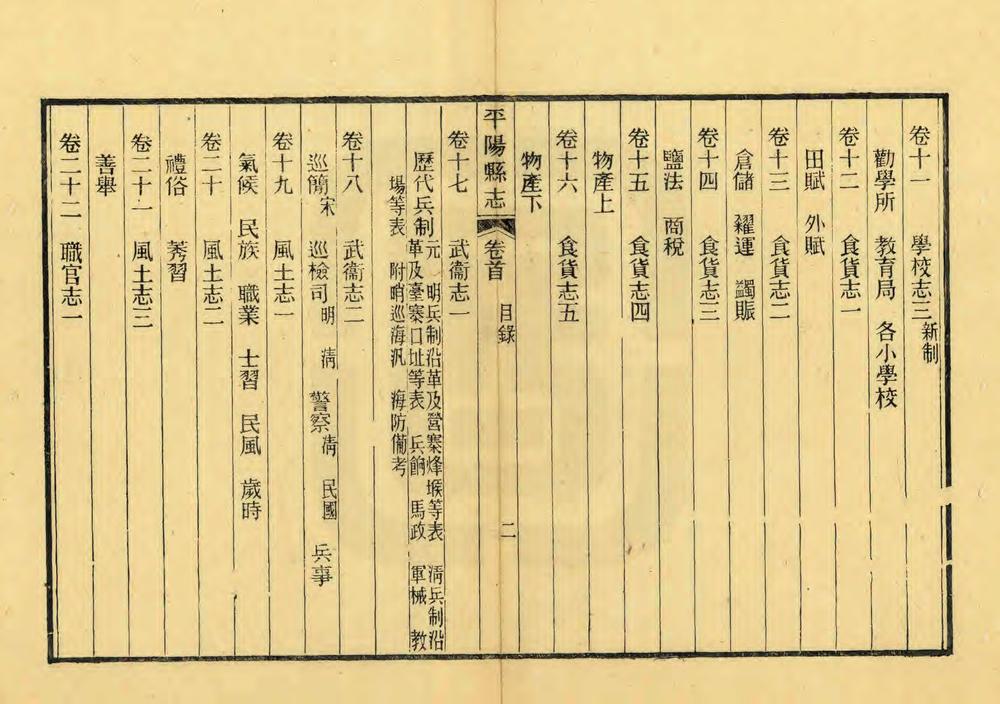 卷十一　學校志三新制
勸學所　教育局　各小學校
卷十二　食貨志一
田賦　外賦
卷十三　食貨志二
倉儲　糴運　蠲賑
卷十四　食貨志三
鹽法　商稅
卷十五　食貨志四
物產上
卷十六　食貨志五
物產下
平陽縣志　卷首　目錄　二
卷十七　武衞志一
歷代兵制元　明兵制沿革及營寨烽堠等表　淸兵制沿
革及臺寨口址等表　兵餉　馬政　軍械　教
場等表　附哨巡海汛　海防備考
卷十八　武衞志二
巡簡宋　巡檢司明　淸　警察淸　民國　兵事
卷十九　風土志一
氣候　民族　職業　士習　民風　歲時
卷二十　風土志二
禮俗　莠習
卷二十一　風土志三
善舉
卷二十二　職官志一